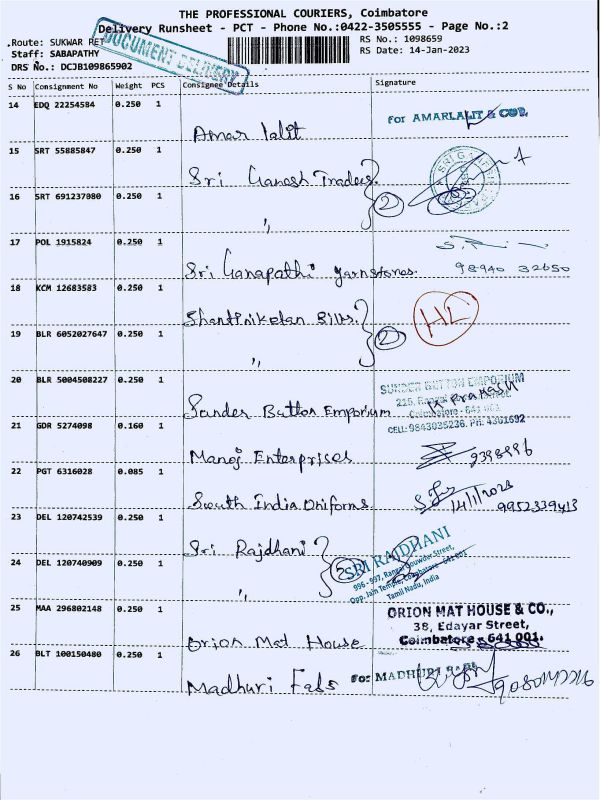 THE PROFESSIONAL COURIERS, Coimbatore
Delivery Runsheet - PCT - Phone No.:0422-3505555 - Page No.:2
Route: SUKWAR PET
Staff: SABAPATHY
DRS No.: DCJB109865902
DOCUMENT DELIVERY
RS No.: 1098659
RS Date: 14-Jan-2023
S No Consignment No Weight PCS Consignee Details Signature
14 EDQ 22254584 0.250 1
Amar lalit
for AMARLALIT & COP.
15 SRT 55885847 0.250 1
Sri Ganesh Traders
16 SRT 691237080 0.250 1
" 2
17 POL 1915824 0.250 1
Sri Ganapathi yarnstores
98940 32650
18 KCM 12683583 0.250 1
Shantiniketan Silks
HL
19 BLR 6052027647 0.250 1
" 2
20 BLR 5004508227 0.250 1
Sunder Button Emporium
SUNDER BUTTON EMPORIUM
Coimbatore - 641 001
CELL: 9843035236, PH: 4301692
21 GDR 5274098 0.160 1
Manoj Enterprises
22 PGT 6316028 0.085 1
South India Uniforms
14/1/2023
9952339413
23 DEL 120742539 0.250 1
Sri Rajdhani
24 DEL 120740909 0.250 1
" 2
SRI RAJDHANI
996 - 997, Rangai Gowder Street,
Opp. Jain Temple, Coimbatore - 641 001
Tamil Nadu, India
25 MAA 296802148 0.250 1
Orion Mat House
ORION MAT HOUSE & CO.,
38, Edayar Street,
Coimbatore - 641 001.
26 BLT 100150480 0.250 1
Madhuri Fabs
for MADHURI FABS